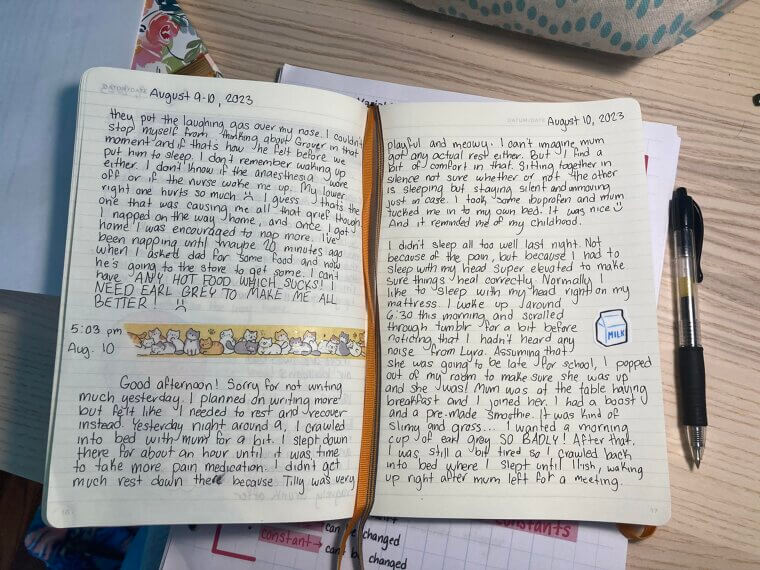 DATUM/DATE August 9-10, 2023
they put the laughing gas over my nose. I couldn't
stop myself from thinking about Grover in that
moment and if that's how he felt before we
put him to sleep. I don't remember waking up
either. I don't know if the anaesthesia wore
off or if the nurse woke me up. My lower
right one hurts so much :( I guess thats the
one that was causing me all that grief though.
I napped on the way home, and once I got
home I was encouraged to nap more. I've
been napping until maybe 20 minutes ago
when I asked dad for some food and now
he's going to the store to get some. I can't
have ANY HOT FOOD WHICH SUCKS! I
NEED EARL GREY TO MAKE ME ALL
BETTER! :(
5:03 pm
Aug. 10
Good afternoon! Sorry for not writing
much yesterday. I planned on writing more
but felt like I needed to rest and recover
instead. Yesterday night around 9, I crawled
into bed with mum for a bit. I slept down
there for about an hour until it was time
to take more pain medication. I didn't get
much rest down there because Tilly was very
16
DATUM/DATE August 10, 2023
playful and meowy. I can't imagine mum
got any actual rest either. But I find a
bit of comfort in that. Sitting together in
silence not sure whether or not the other
is sleeping but staying silent and unmoving
just in case. I took some ibuprofen and mum
tucked me in to my own bed. It was nice :)
And it reminded me of my childhood.
I didn't sleep all too well last night. Not
because of the pain, but because I had to
sleep with my head super elevated to make
sure things heal correctly. Normally I
like to sleep with my head right on my
mattress. I woke up around
6:30 this morning and scrolled
through tumblr for a bit before
noticing that I hadn't heard any
noise from Lyra. Assuming that
she was going to be late for school, I popped
out of my room to make sure she was up
and she was! Mum was at the table having
breakfast and I joined her. I had a boost
and a pre-made smoothie. It was kind of
slimy and gross... I wanted a morning
cup of earl grey SO BADLY! After that,
I was still a bit tired so I crawled back
into bed where I slept until 11ish, waking
up right after mum left for a meeting.
MILK
17
constants
constant → can't be changed